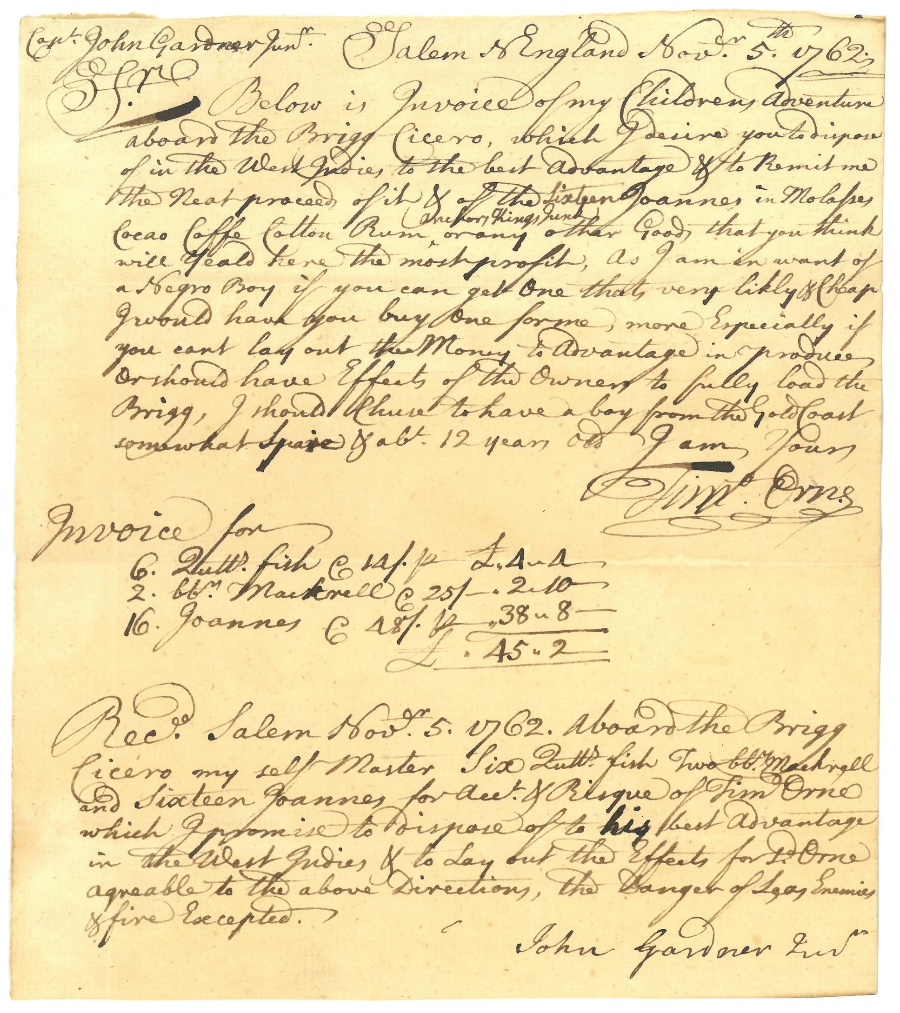 Capt. John Gardner Junr. Salem N England Novr. 5th. 1762
Sr.
Below is Invoice of my Childrens Adventure
aboard the Brigg Cicero, which I desire you to dispose
of in the West Indies to the best Advantage & to Remit me
the Neat proceeds of it & of the Sixteen Joannes in Molasses
Cocao Coffe Cotton Rum or any other Goods that you think
will yeald here the most profit, As I am in want of
a Negro Boy if you can get One thats very likly & Cheap
I would have you buy One for me, more Especially if
you cant lay out the Money to Advantage in produce
Or should have Effects of the Owners to fully load the
Brigg, I should Chuse to have a boy from the Gold Coast
somewhat Spare & abt. 12 years Old I am Yours
Timo. Orne
Invoice for
6. Quttls. fish @ 14/. p £ 4 " 4
2. bbls Mackrell @ 25/ " 2 " 10
16. Joannes @ 48/. p " 38 " 8
£ " 45 " 2
Recd. Salem Novr. 5. 1762. Aboard the Brigg
Cicero my self Master Six Quttls. fish Two bbls. Mackrell
and Sixteen Joannes for Acct. & Risque of Timo Orne
which I promise to dispose of to his best Advantage
in the West Indies & to Lay out the Effects for sd Orne
agreable to the above Directions, the Danger of Seas Enemies
& fire Excepted.
John Gardner Junr